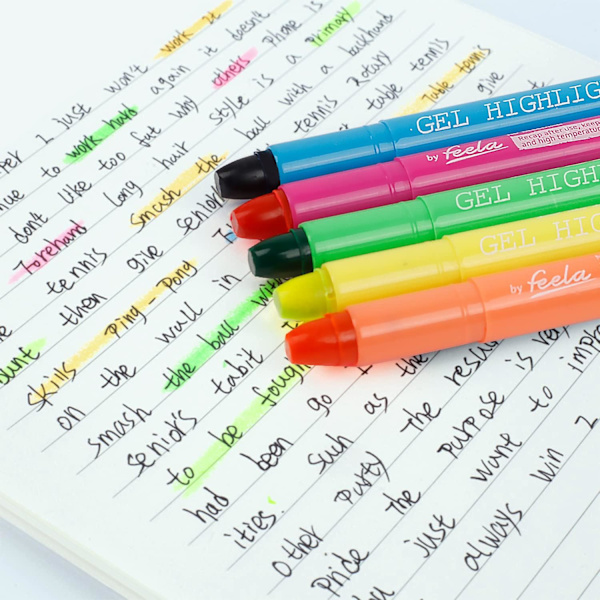 I just won't work it
to work hard again it doesn't
dont like too fat why others Phone is
Forehand long hair style is a Primary
tennis smash the ball with a backhand
then give senior tennis Rotary
skills Ping-Pong table tennis
on the wall in Table tennis give
smash the ball with
seniors tabit
to be
had been go
ities. such as the
other Purty Purpose is
Pride the want to
just always win 2
GEL HIGHLIG
by feela
Recap after use, keep
and high temperature
GEL HIGH
GEL HIG
by feela